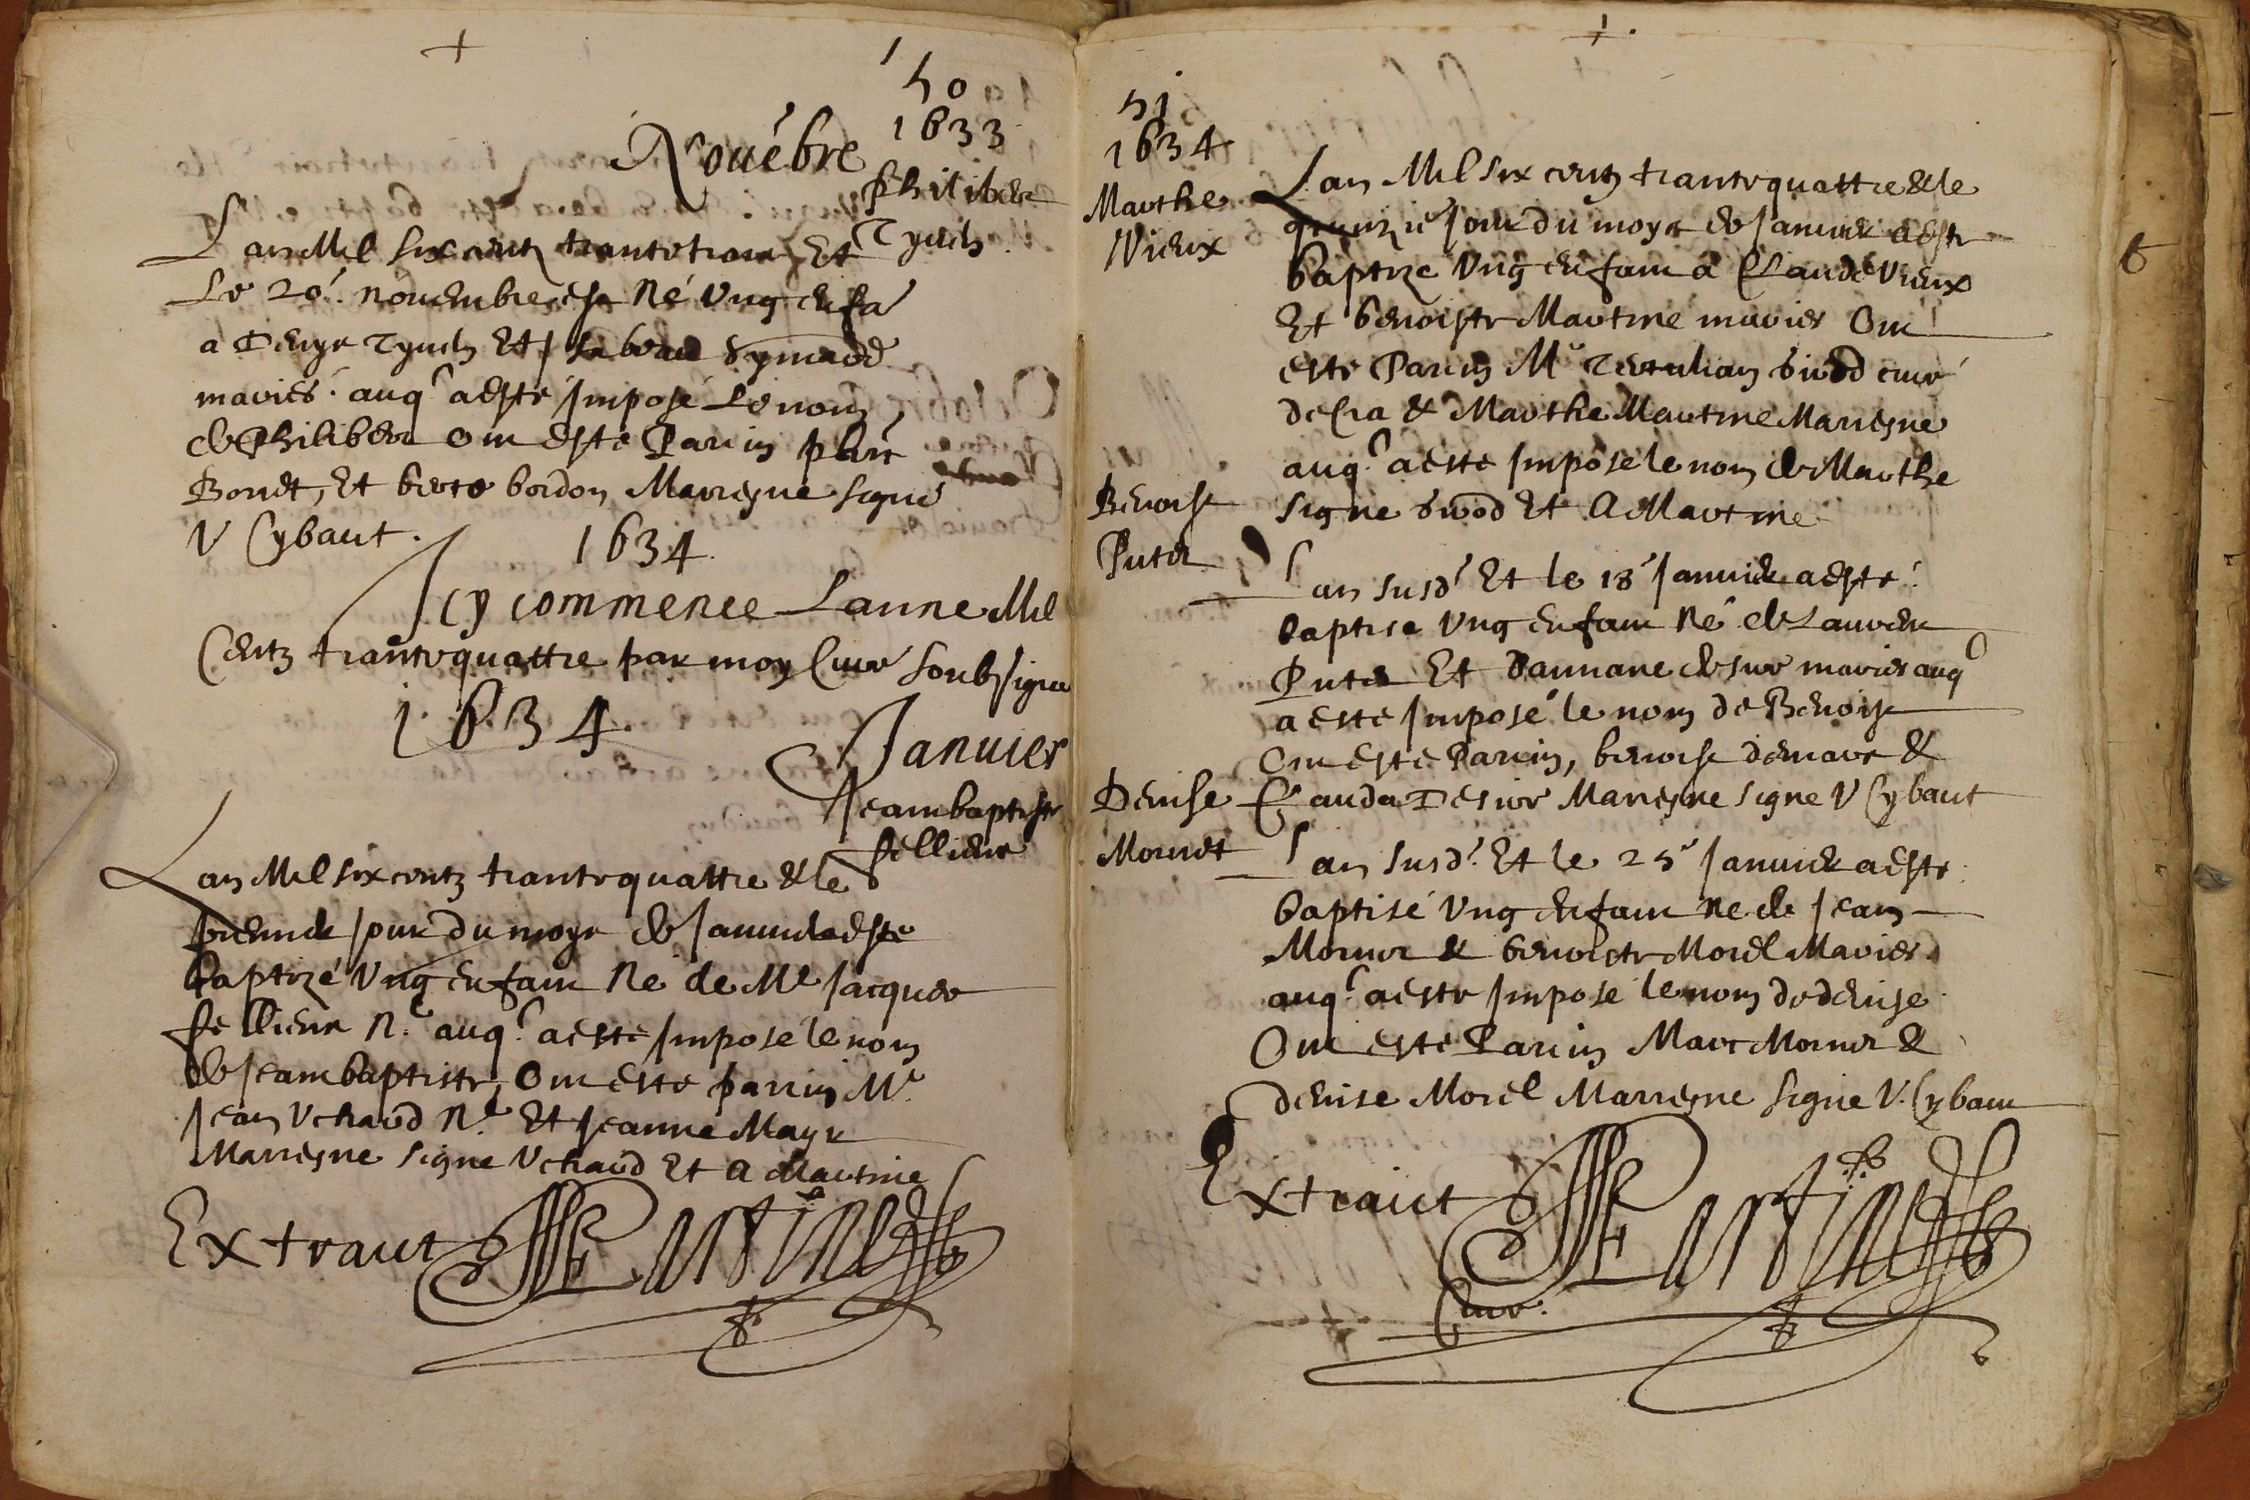 50
1633
Nouébre
Philiber
Tyuen
Lan Mil six centz trante trois Et
Le 20e. nouembre est Né Ung enfā
a Denys Tyuen Et Isabeau Symaōd
mariés. auql a esté Imposé Le nom
de Philiber Ont esté Parrin
Bonet, Et bordon Marresne Signé
V Cybaut.
1634.
Icy commence Lanne Mil
Centz trante quattre par moy Cure soubsigne
1634.
Januier
Jean baptiste
fellieur
Lan Mil six centz trante quattre & le
premier Jour du moys de Januier a este
baptizé Ung enfant Né de Me Jacques
fellieur N.e auql. a este Impose le nom
de Jean baptiste, Ont este parrin Me.
Jean Uchaud N.e Et Jeanne Mayr
Marresne signe Uchaud Et A Martine
Extraict Martine
51
1634
Marthe
Vieux
Lan Mil six centz trante quattre & le
quinzie Jour du moys de Januier a este
baptize Ung enfant a Claude Vieux
Et benoiste Martine maries Ont
este Parrin Me Tertulian curé
de Cra & Marthe Martine Marresne
auql. a este Imposé le nom de Marthe
signe Et A Martine
Benoist
Puter
Lan susd. Et le 18e Januier a esté
baptise Ung enfant Né de Laurent
Puter Et maries auql
a este Imposé le nom de Benoist
Ont este Parrin, benoist demare &
Clauda Marresne signe V Cybaut
Denise
Mornet
Lan susd. Et le 25e Januier a este
baptisé Ung enfant Ne de Jean
Mornet & benoiste Morel Maries
auql. a este Impose le nom de denise
Ont este Parrin Marc Mornet &
denise Morel Marresne signe V. Cybaut
Extraict Martine
Cure.